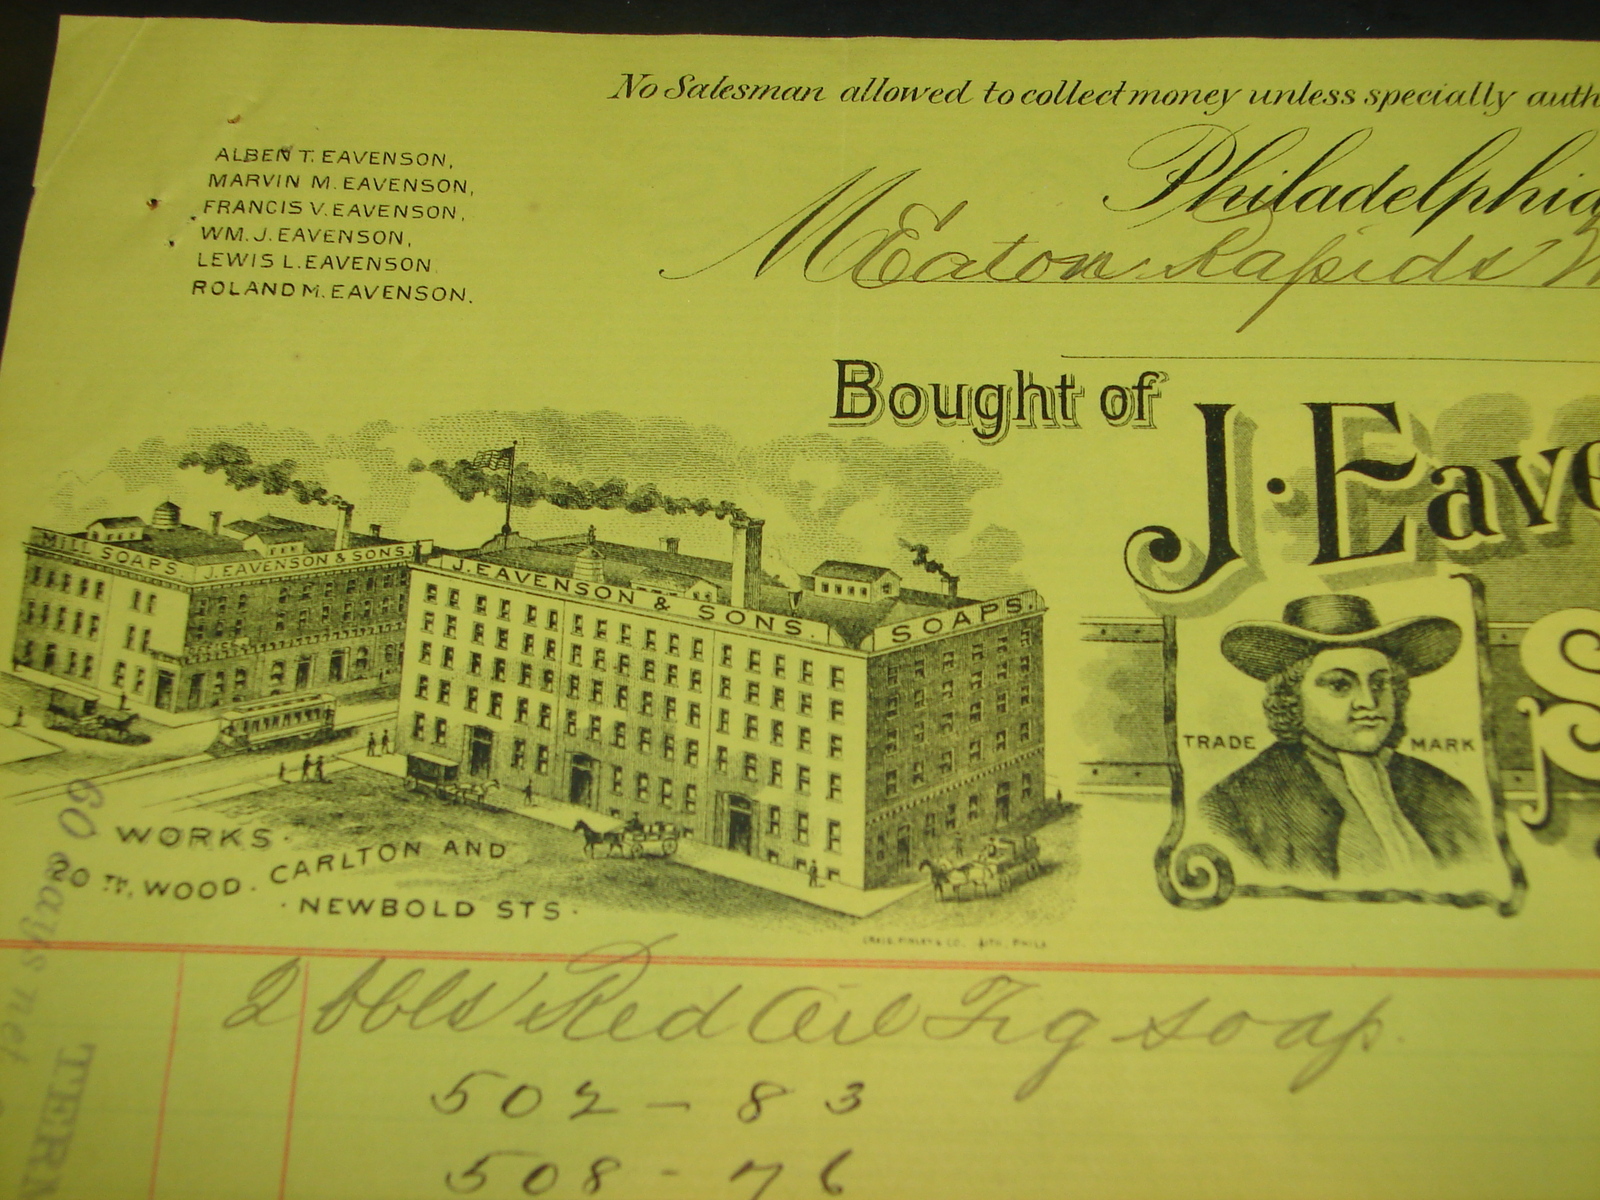 No Salesman allowed to collect money unless specially auth
ALBEN T. EAVENSON,
MARVIN M. EAVENSON,
FRANCIS V. EAVENSON,
WM. J. EAVENSON,
LEWIS L. EAVENSON
ROLAND M. EAVENSON.
Philadelphia
M Eaton Rapids
Bought of
J. Eave
MILL SOAPS J. EAVENSON & SONS.
J. EAVENSON & SONS. SOAPS.
TRADE MARK
S
WORKS.
20 TH, WOOD. CARLTON AND
· NEWBOLD STS ·
CRAIG, FINLEY & CO. LITH. PHILA
2 bbls Red Oil Fig soap.
502 - 83
508 - 76
60 days net
TERM